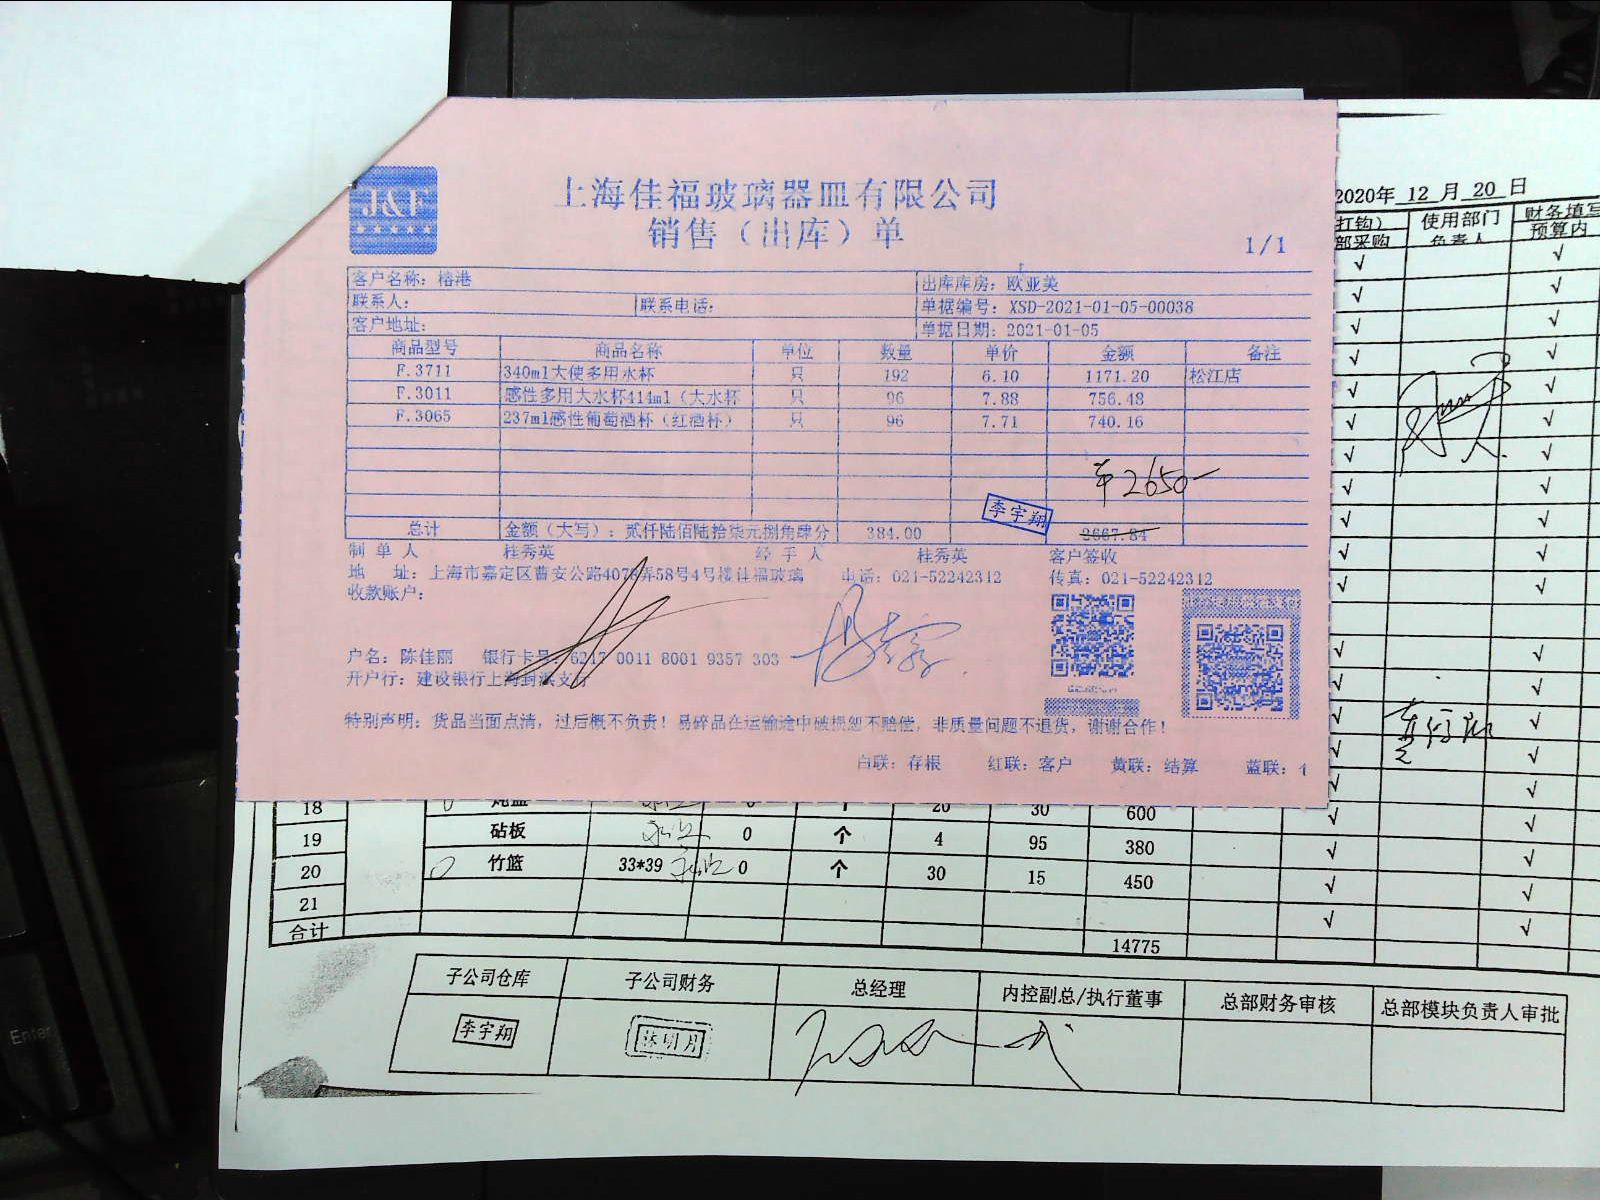 J&F
上海佳福玻璃器皿有限公司
销售（出库）单
1/1
客户名称：榕港 出库库房：欧亚美
联系人： 联系电话： 单据编号：XSD-2021-01-05-00038
客户地址： 单据日期：2021-01-05
商品型号 商品名称 单位 数量 单价 金额 备注
F.3711 340ml大使多用水杯 只 192 6.10 1171.20 松江店
F.3011 感性多用大水杯414ml（大水杯 只 96 7.88 756.48
F.3065 237ml感性葡萄酒杯（红酒杯） 只 96 7.71 740.16
2650-
李宇翔
总计 金额（大写）：贰仟陆佰陆拾柒元捌角肆分 384.00 2667.84
制单人 桂秀英 经手人 桂秀英 客户签收
地 址：上海市嘉定区曹安公路4078弄58号4号楼佳福玻璃 电话：021-52242312 传真：021-52242312
收款账户：
户名：陈佳丽 银行卡号：6217 0011 8001 9357 303
开户行：建设银行上海封浜支行
特别声明：货品当面点清，过后概不负责！易碎品在运输途中破损恕不赔偿，非质量问题不退货，谢谢合作！
白联：存根 红联：客户 黄联：结算 蓝联：
2020年 12 月 20 日
打钩） 使用部门 财务填写
部采购 负责人 预算内
18 20 30 600
19 砧板 0 个 4 95 380
20 竹篮 33*39 0 个 30 15 450
21
合计 14775
子公司仓库 子公司财务 总经理 内控副总/执行董事 总部财务审核 总部模块负责人审批
李宇翔 林明月
Enter